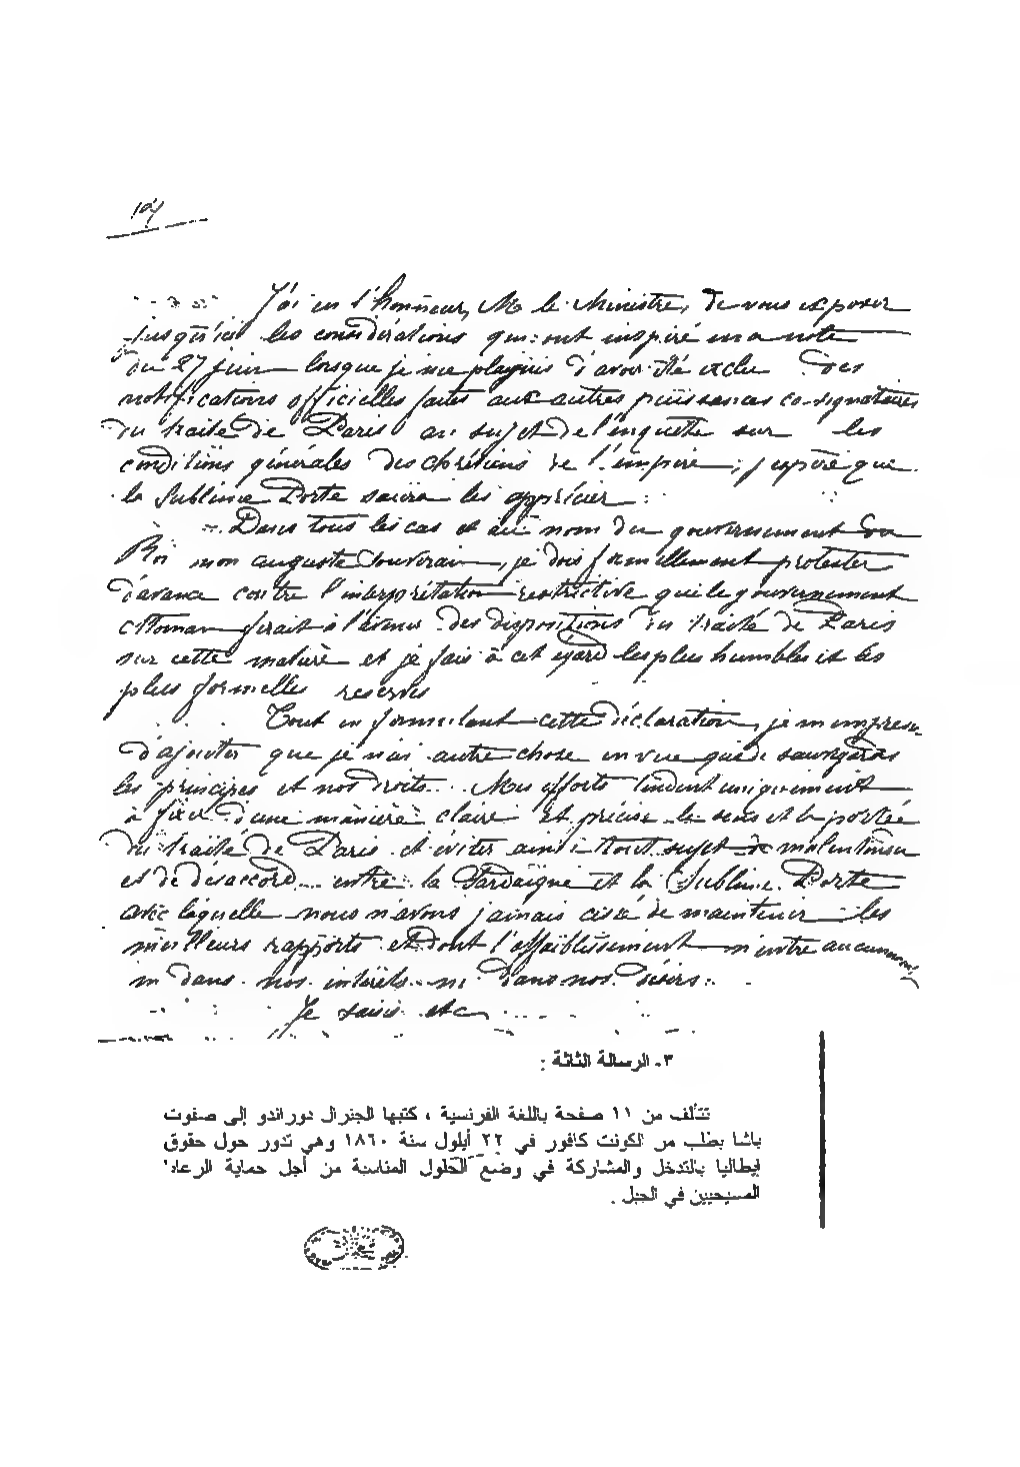 J'ai eu l'honneur, M. le Ministre, de vous exposer
jusqu'ici les considérations qui ont inspiré ma note
du 27 juin lorsque je me plaignis d'avoir été exclu des
notifications officielles faites aux autres puissances co-signataires
du traité de Paris au sujet de l'enquête sur les
conditions générales des chrétiens de l'empire, j'espère que
la Sublime Porte saura les apprécier.
Dans tous les cas et au nom du gouvernement du
Roi mon auguste Souverain, je dois formellement protester
d'avance contre l'interprétation restrictive que le gouvernement
Ottoman ferait à l'avenir des dispositions du traité de Paris
sur cette matière et je fais à cet égard les plus humbles et les
plus formelles reserves
Tout en formulant cette déclaration, je m'empresse
d'ajouter que je n'ai autre chose en vue que de sauvegarder
les principes et nos droits. Mes efforts tendent uniquement
à fixer d'une manière claire et précise le sens et la portée
du traité de Paris et éviter ainsi tout sujet de malentendu
et de désaccord entre la Sardaigne et la Sublime Porte
avec laquelle nous n'avons jamais cessé de maintenir les
meilleurs rapports et dont l'affaiblissement n'entre aucunement
ni dans nos intérêts ni dans nos désirs.
Je saisis etc
٣ـ الرسالة الثالثة :
تتألف من ١١ صفحة باللغة الفرنسية ، كتبها الجنرال دوراندو إلى صفوت
باشا بطلب من الكونت كافور في ٢٢ أيلول سنة ١٨٦٠ وهي تدور حول حقوق
إيطاليا بالتدخل والمشاركة في وضع الحلول المناسبة من أجل حماية الرعايا
المسيحيين في الجبل .